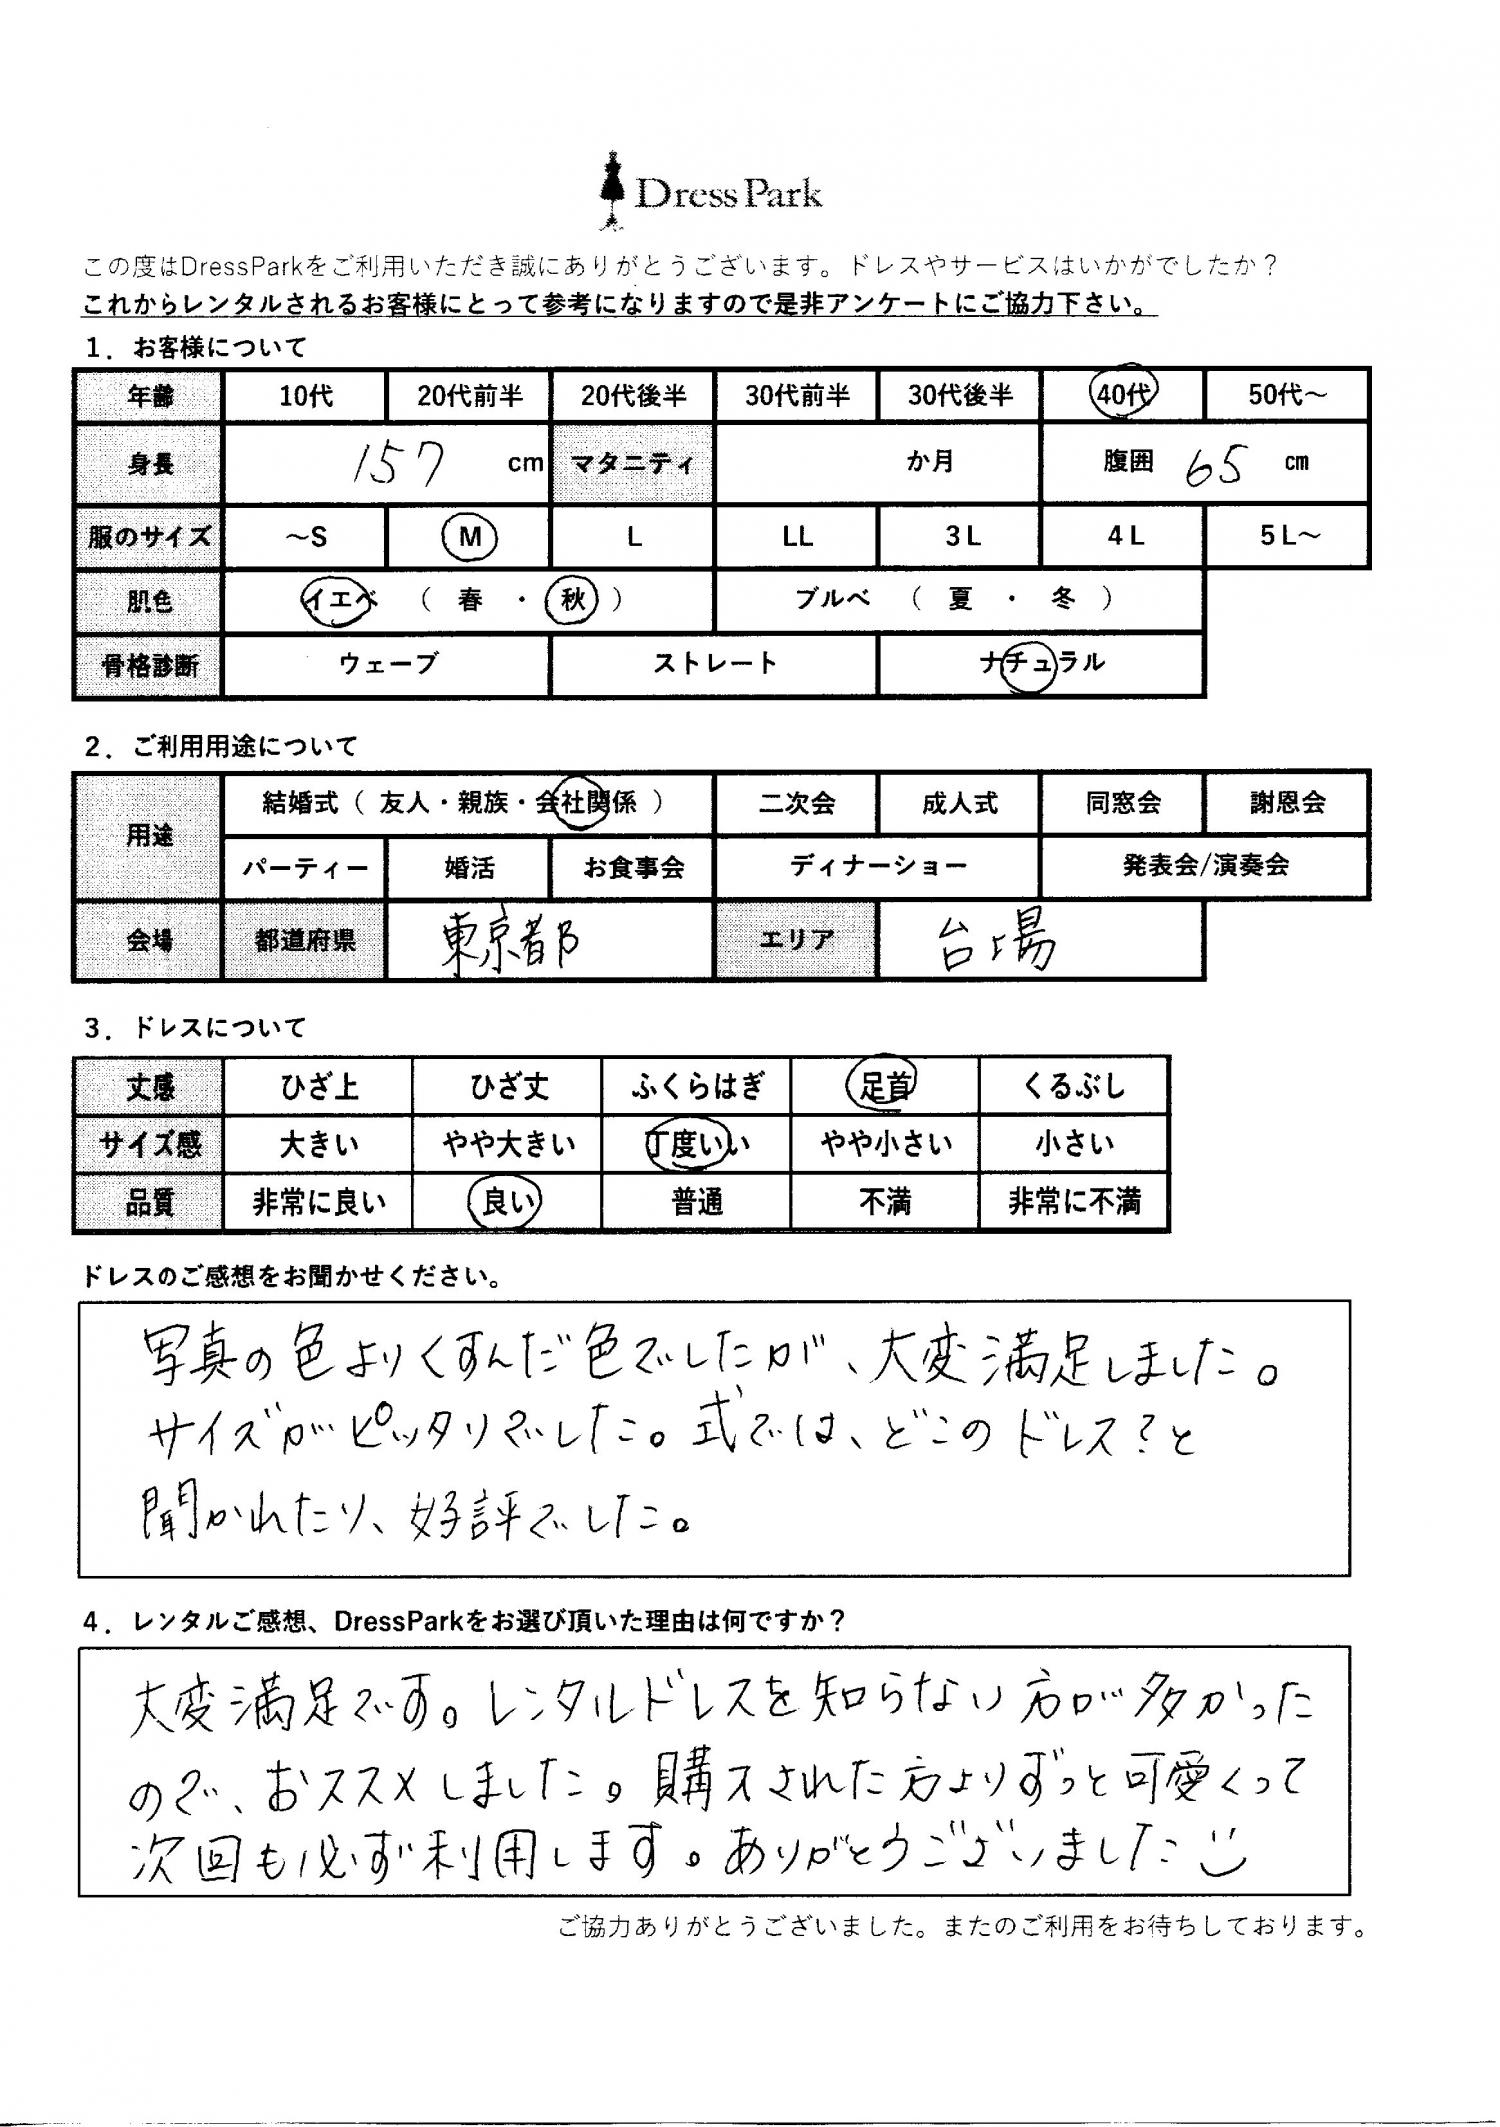 Dress Park
この度はDressParkをご利用いただき誠にありがとうございます。ドレスやサービスはいかがでしたか？
これからレンタルされるお客様にとって参考になりますので是非アンケートにご協力下さい。
1．お客様について
年齢 10代 20代前半 20代後半 30代前半 30代後半 40代 50代～
身長 157 cm マタニティ か月 腹囲 65 cm
服のサイズ ～S M L LL 3L 4L 5L～
肌色 イエベ （ 春 ・ 秋 ） ブルベ （ 夏 ・ 冬 ）
骨格診断 ウェーブ ストレート ナチュラル
2．ご利用用途について
用途 結婚式（ 友人・親族・会社関係 ） 二次会 成人式 同窓会 謝恩会
パーティー 婚活 お食事会 ディナーショー 発表会/演奏会
会場 都道府県 東京都 エリア 台場
3．ドレスについて
丈感 ひざ上 ひざ丈 ふくらはぎ 足首 くるぶし
サイズ感 大きい やや大きい 丁度いい やや小さい 小さい
品質 非常に良い 良い 普通 不満 非常に不満
ドレスのご感想をお聞かせください。
写真の色よりくすんだ色でしたが、大変満足しました。
サイズがピッタリでした。式では、どこのドレス？と
聞かれたり、好評でした。
4．レンタルご感想、DressParkをお選び頂いた理由は何ですか？
大変満足です。レンタルドレスを知らない方が多かった
ので、おススメしました。購入された方よりずっと可愛くって
次回も必ず利用します。ありがとうございました
ご協力ありがとうございました。またのご利用をお待ちしております。